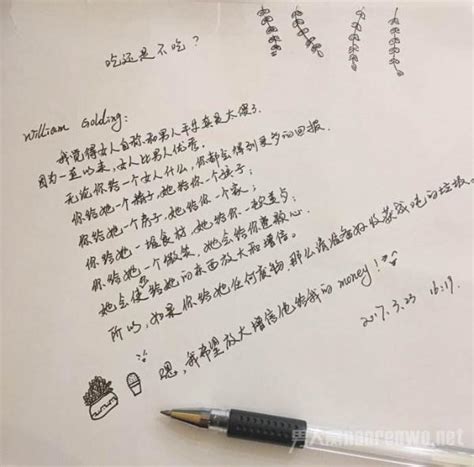 吃还是不吃？
William Golding:
我觉得女人自称和男人平等真是太傻了.
因为一直以来,女人比男人优秀.
无论你给一个女人什么,你都会得到更多的回报.
你给她一个精子,她给你一个孩子;
你给她一个房子,她给你一个家;
你给她一堆食材,她给你一顿美歺;
你给她一个微笑,她会给你整颗心.
她会使给她的东西放大和增倍.
所以,如果你给她任何废物,那么请准备好收获成吨的垃圾.
嗯,我希望放大增倍他给我的money!
2017.3.23 16:19.
nanrenwo.net